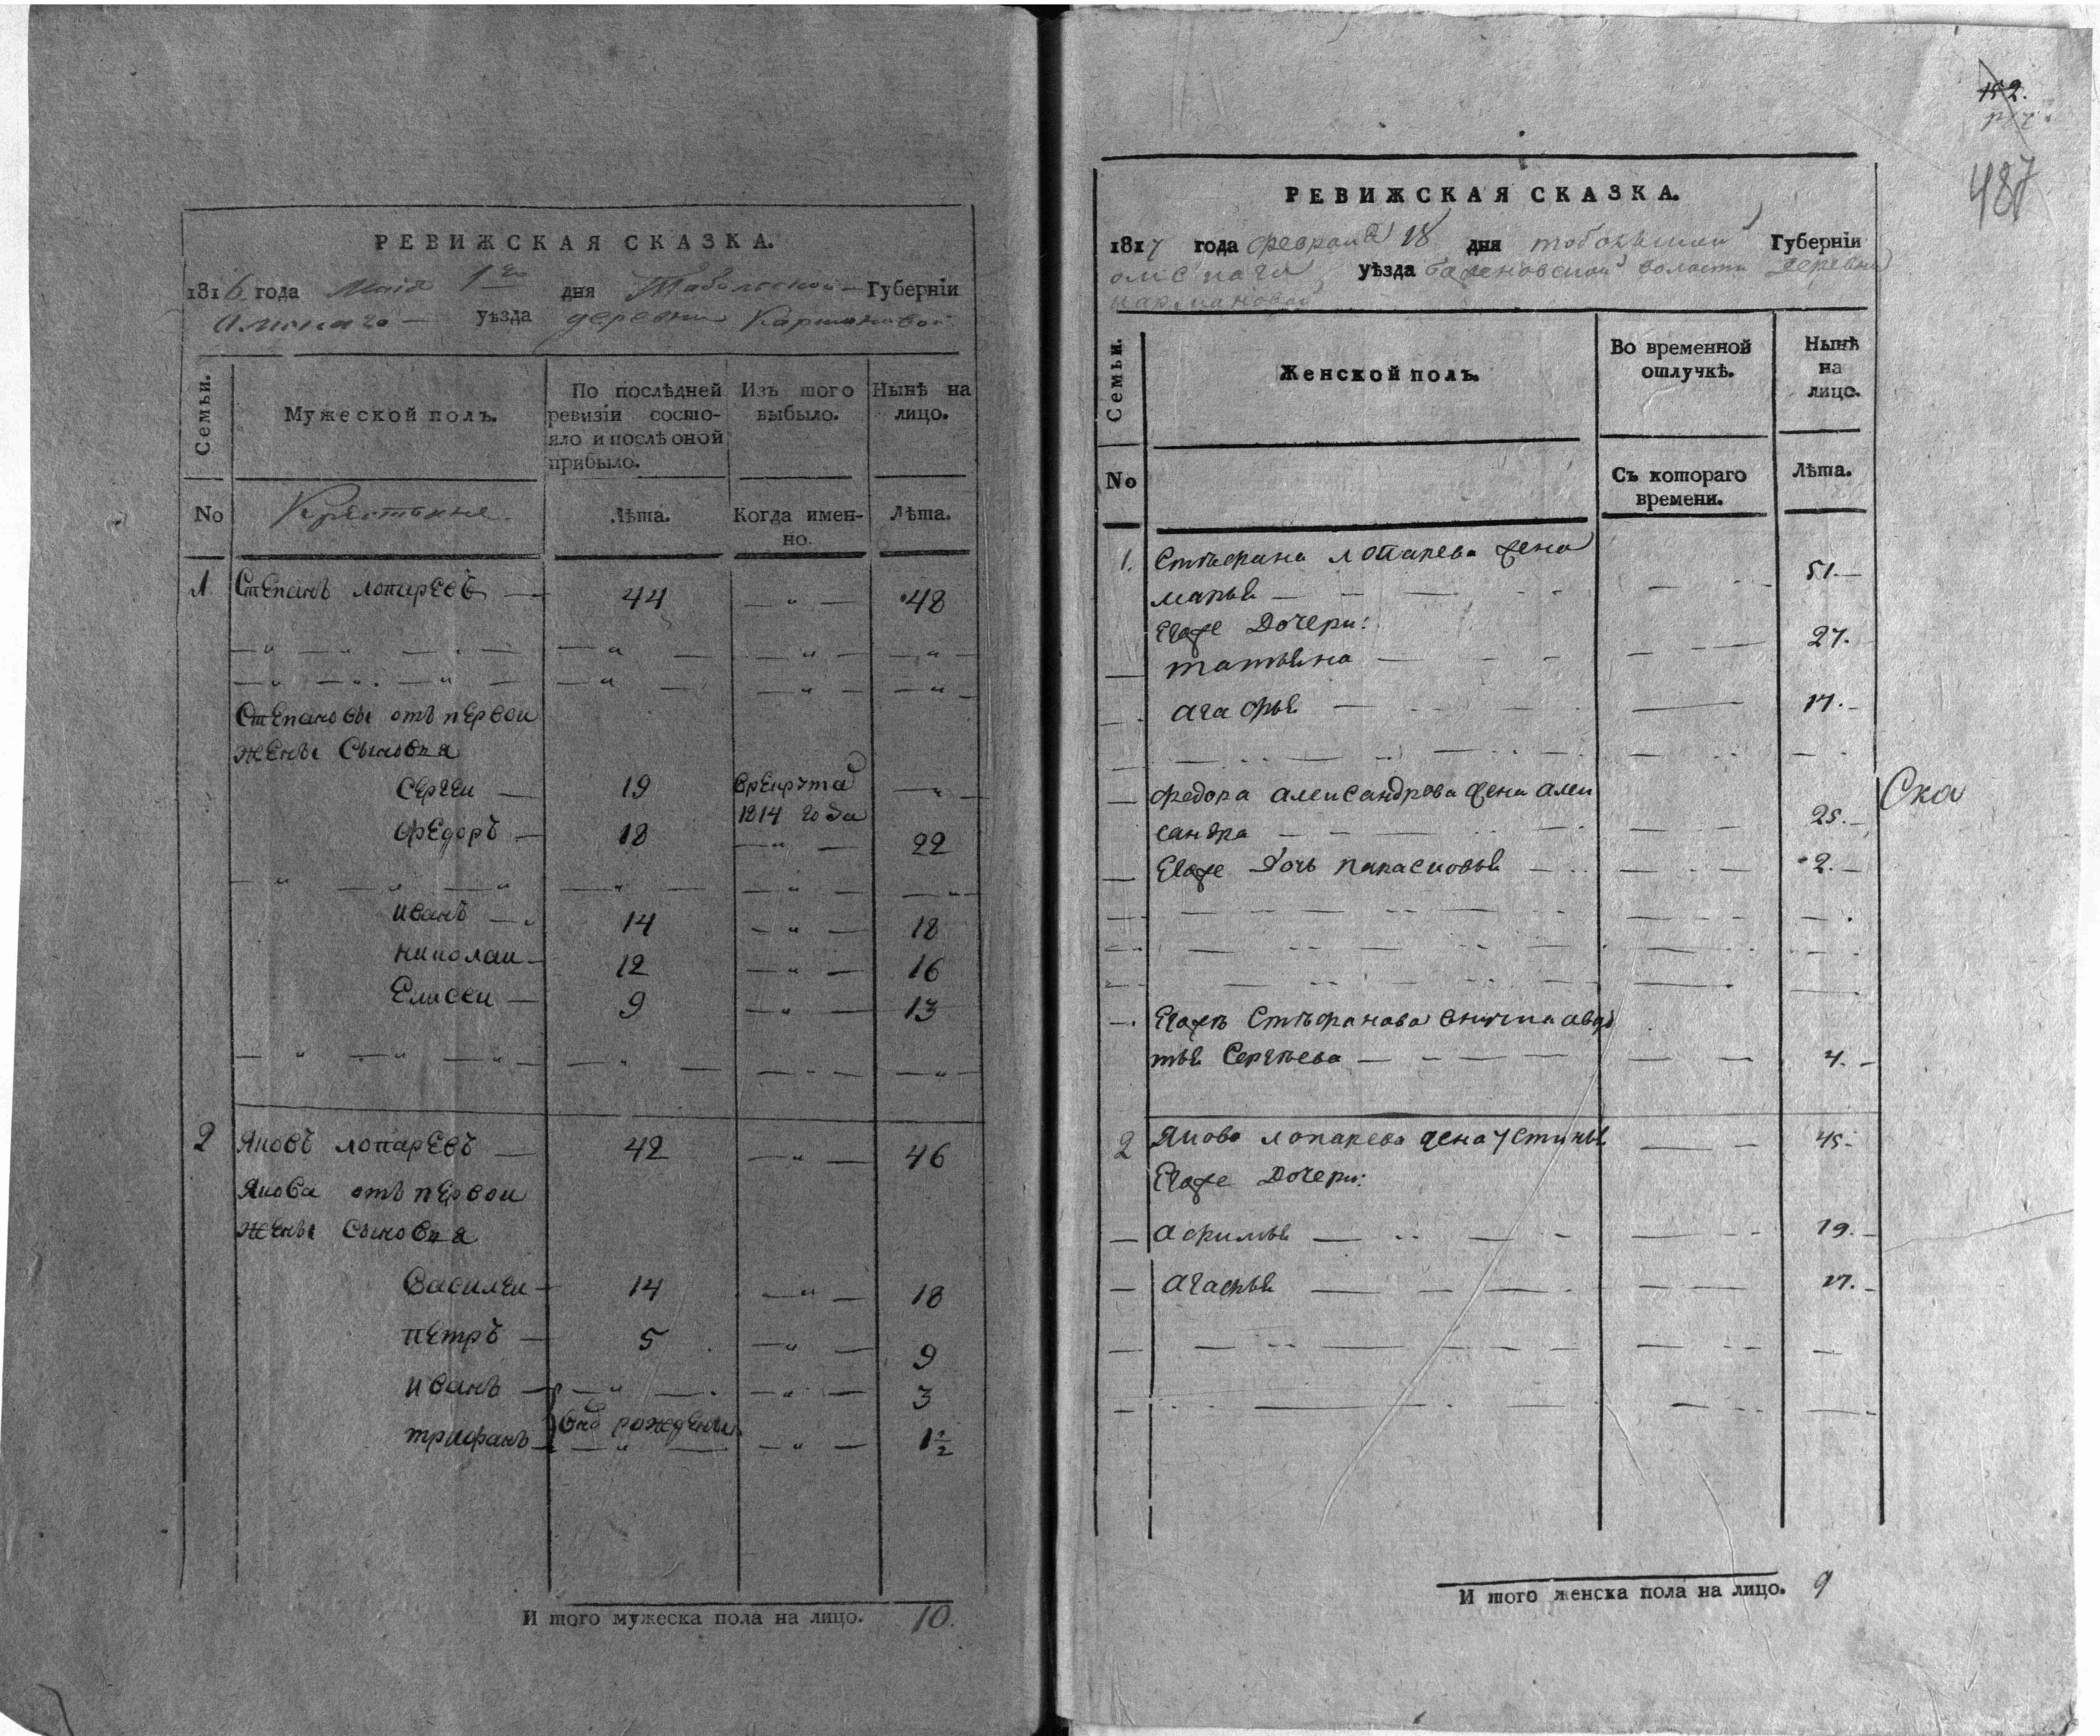 РЕВИЖСКАЯ СКАЗКА.
1816 года Маiя 1го дня Тобольской Губернiи
Омскаго уѣзда деревни Кармановой
Семьи.
Мужеской полъ.
По послѣдней ревизiи состо-
яло и послѣ оной
прибыло.
Изъ того
выбыло.
Нынѣ на
лицо.
No
Крестьяне.
Лѣта.
Когда имен-
но.
Лѣта.
1 Степанъ лопаревъ 44 48
Степановы отъ первои
жены Сыновья
Сергеи 19 врекрута
1814 года
Федоръ 18 22
иванъ 14 18
николаи 12 16
Елисеи 9 13
2 Яковъ лопаревъ 42 46
Якова отъ первои
жены Сыновья
Василеи 14 18
петръ 5 9
иванъ 3
рождении
трифанъ 1 1/2
И того мужеска пола на лицо. 10.
152.
487
РЕВИЖСКАЯ СКАЗКА.
1817 года февраля 18 дня тобольской Губернiи
омскаго уѣзда баженовской волости деревни
кармановой
Семьи.
Женской полъ.
Во временной
отлучкѣ.
Нынѣ
на
лицо.
No
Съ котораго
времени.
Лѣта.
1. Стѣфана лопарева жена
марья 51.
Егоже Дочери:
татьяна 27.
агафья 17.
федора александрова жена алек
сандра 25.
Егоже дочь парасковья 2.
Егожъ Стѣфанова внучка авдо
тья Сергѣева 4.
2 Якова лопарева жена устинья 45
Егоже Дочери:
афимья 19.
агафья 17.
Ска
И того женска пола на лицо. 9